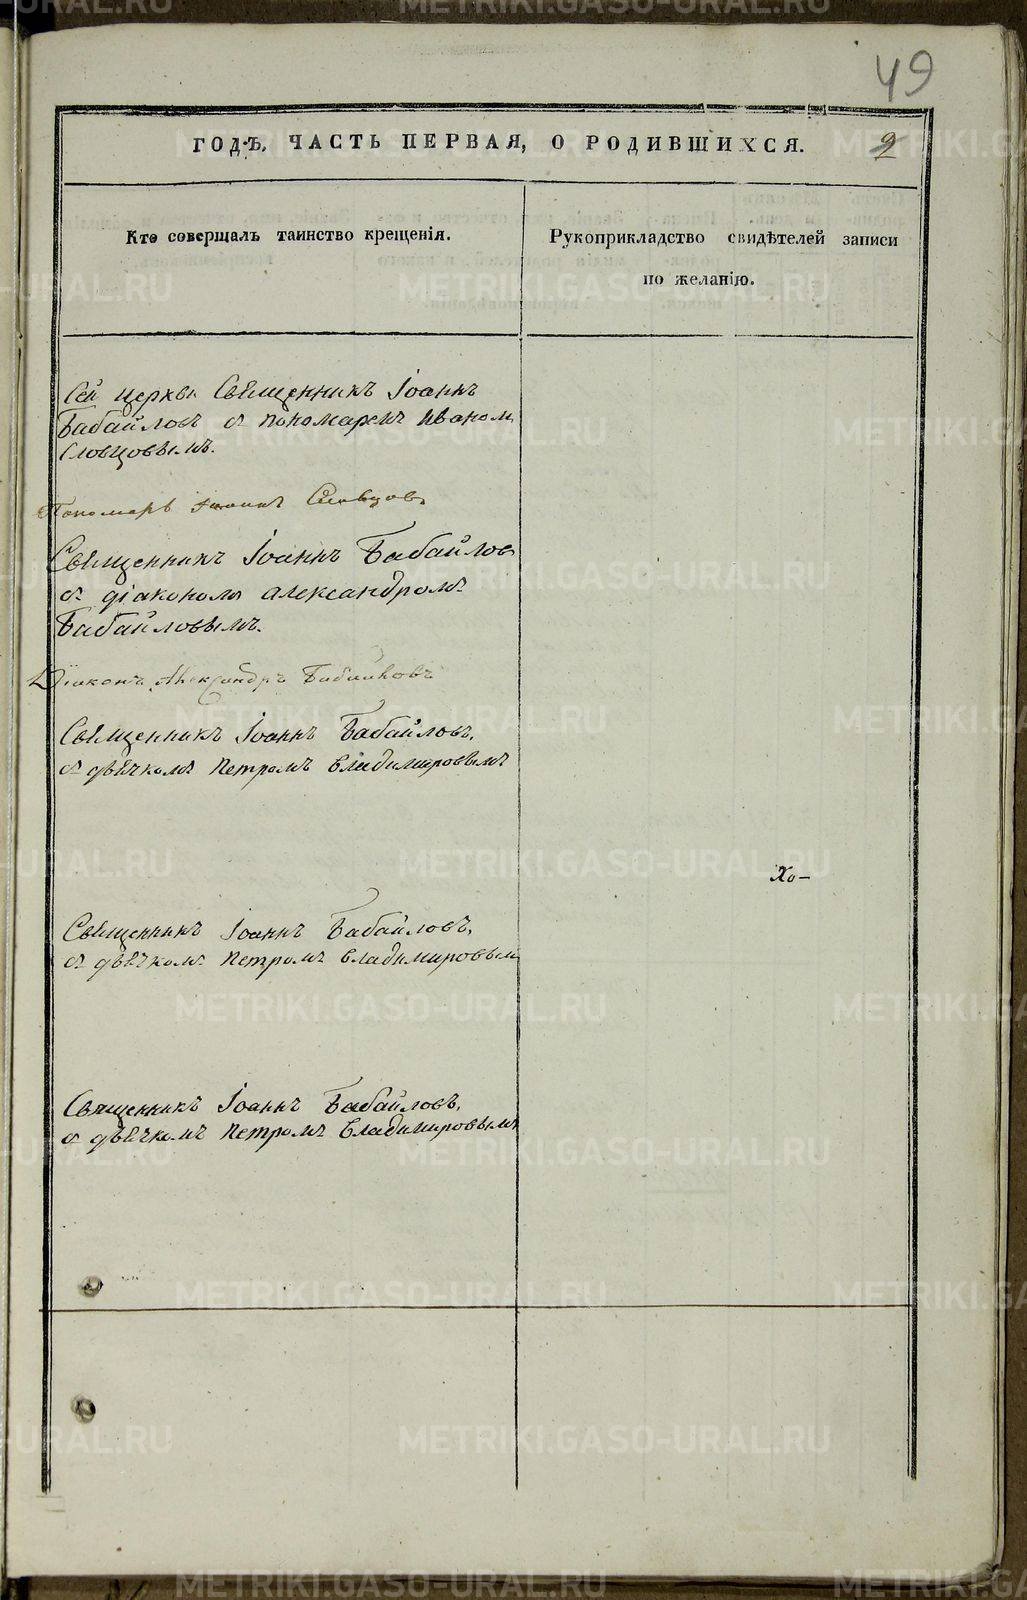 49
ГОДЪ, ЧАСТЬ ПЕРВАЯ, О РОДИВШИХСЯ.
2
Кто совершалъ таинство крещенія.
Рукоприкладство свидѣтелей записи
по желанію.
Сей церкви Священникъ Іоаннъ
Бабайловъ съ пономаремъ Иваномъ
Словцовымъ.
Пономарь Іоаннъ Словцовъ
Священникъ Іоаннъ Бабайловъ
съ діакономъ Александромъ
Бабайловымъ.
Діаконъ Александръ Бабайловъ
Священникъ Іоаннъ Бабайловъ,
съ дьячкомъ Петромъ Владимировымъ
Хо-
Священникъ Іоаннъ Бабайловъ,
съ дьячкомъ Петромъ Владимировым
Священникъ Іоаннъ Бабайловъ,
съ дьячкомъ Петромъ Владимировымъ
METRIKI.GASO-URAL.RU